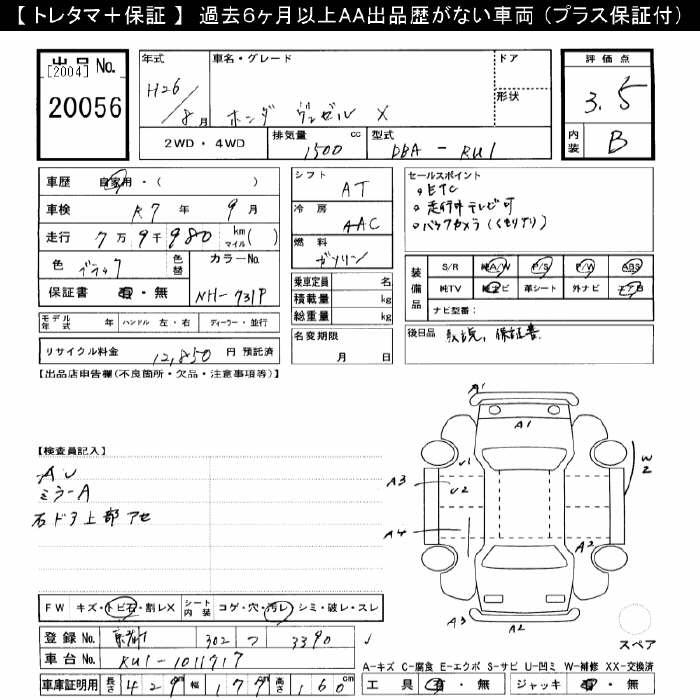 【 トレタマ＋保証 】 過去6ヶ月以上AA出品歴がない車両（プラス保証付）
出品 No.
[2004]
20056
年式
H26/8月
車名・グレード
ホンダ ヴェゼル X
ドア
形状
2WD・4WD
排気量 1500 cc
型式 DBA - RU1
評価点
3.5
内装 B
車歴 自家用・( )
車検 R7年 9月
走行 7万9千980 km マイル( )
色 ブラック 色替 カラーNo.
保証書 有・無 NH-731P
モデル年式 年 ハンドル 左・右 ディーラー・並行
リサイクル料金 12,850 円 預託済
シフト AT
冷房 AAC
燃料 ガソリン
乗車定員 名
積載量 kg
総重量 kg
名変期限
月 日
セールスポイント
○ETC
○走行中テレビ可
○バックカメラ（くもりアリ）
装備品
S/R 純A/W P/S P/W ABS
純TV 純ナビ 革シート 外ナビ エアB
ナビ型番：
後日品 取説, 保証書
【出品店申告欄(不良箇所・欠品・注意事項等)】
【検査員記入】
AU
ミラーA
右ドア上部アセ
A1
A1
U1
U2
A3
A4
W2
A2
A3
A2
スペア
FW キズ・トビ石・割レX シート内装 コゲ・穴・汚レ・シミ・破レ・スレ
登録 No. 302 つ 3390
車台 No. RU1-1011717
車庫証明用 長さ 429 幅 177 高さ 160 cm
A-キズ C-腐食 E-エクボ S-サビ U-凹ミ W-補修 XX-交換済
工具 有・無 ジャッキ 有・無